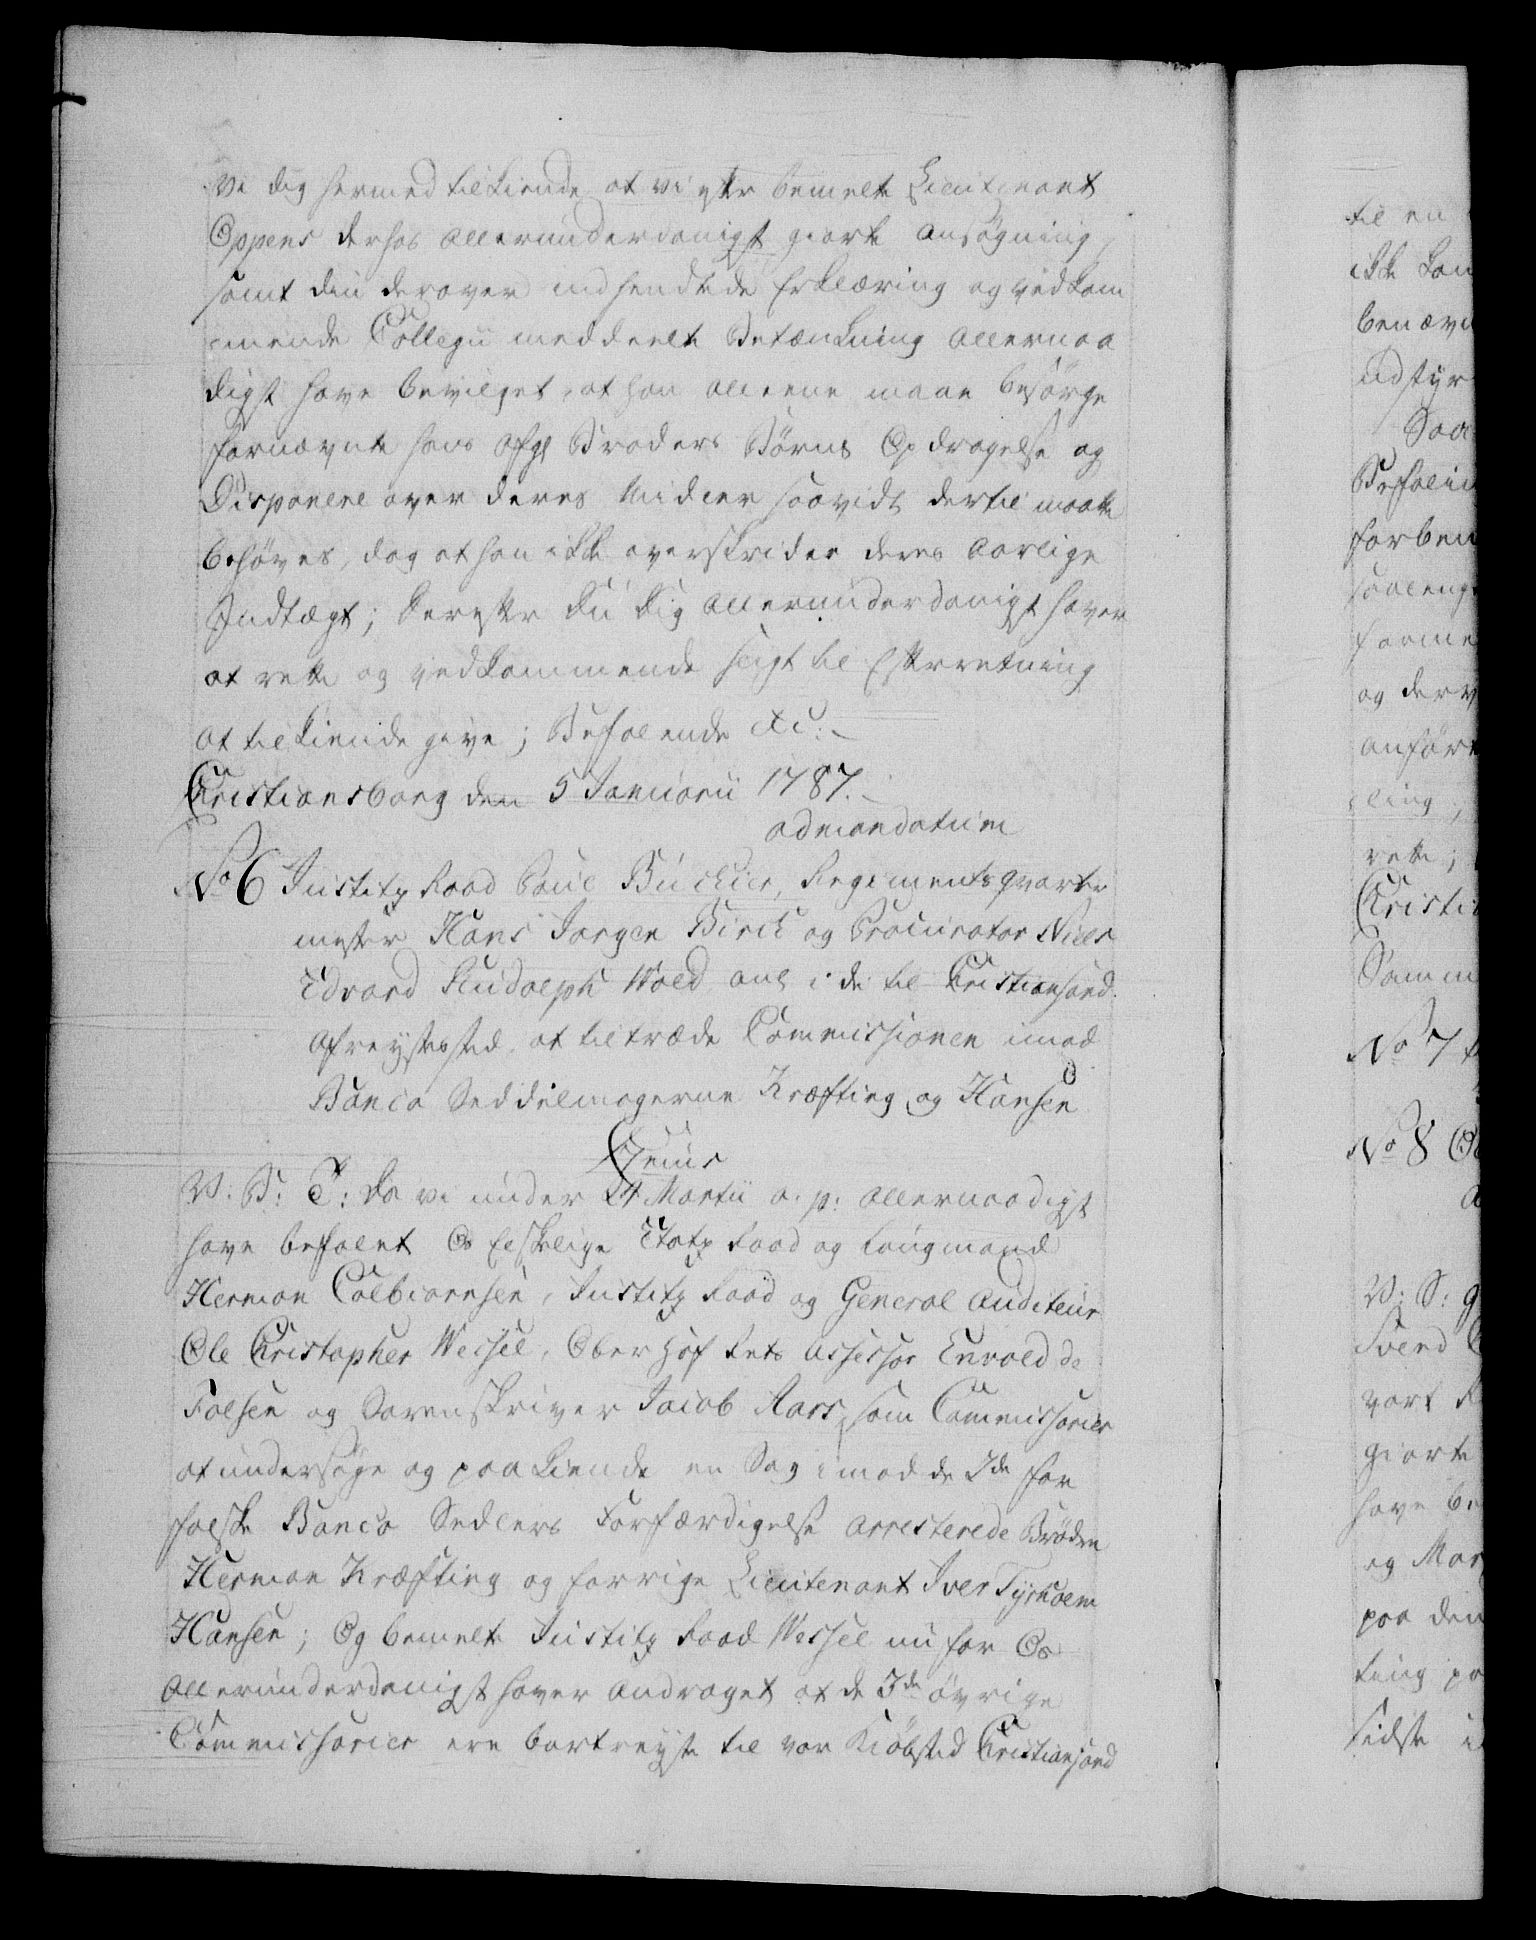 Ve dig hermed tilkiende at vi efter bemelte Lieutenant
Oppens derhos allerunderdanigst giorte Ansøgning,
samt din derover indsendede Erklæring og vedkom
mende Collegii meddeelte Betænkning allernaa
digst have bevilget, at han alleene maae besørge
fornævnte hans afg. Broders Børns Opdragelse og
Disponere over deres Midler saavidt dertil maatte
behøves, dog at han ikke overskrider deres Aarlige
Indtægt; derefter du dig allerunderdanigst haver
at rette og vedkommende sligt til Efterretning
at tilkiende give; Befalende etc:
Christiansborg den 5 Januarii 1787.
ad mandatum
No 6 Justitz Raad Poul Büchler, Regimentsqvarteer
mester Hans Jørgen Birch og Procurator Niels
Edvard Rudolph Wold anl i de til Christiansand
Afreystes sted, at tiltræde Commissionen imod
Banco Seddelmagerne Kræfting og Hansen
7 ejus
V: S: T: Da vi under 24 Martii a. p. allernaadigst
have befalet Os Elskelige Etatz Raad og Laugmand
Herman Colbiørnsen, Justitz Raad og General Auditeur
Ole Christopher Wessel, Ober Hof Rets Assessor Envold de
Falsen og Sorenskriver Jacob Aars, som Commissarier
at undersøge og paakiende en Sag imod de 2de for
falske Banco Sedlers Forfærdigelse arresterede Brødre
Herman Kræfting og forrige Lieutenant Iver Tyrholm
Hansen; Og bemelte Justitz Raad Wessel nu for Os
allerunderdanigst haver andraget at de 3de øvrige
Commissarier ere bortreyste til vor Kiøbsted Christiansand
til en
ikke kan
benævn
udstyr
Saa
Befalin
forben
saaleng
forme
og derv
anført
ling,
rette;
Christi
Samm
No 7
No 8
V: S: g
Svend
vort
giorte
have be
og Mar
paa den
ting pa
sidste i